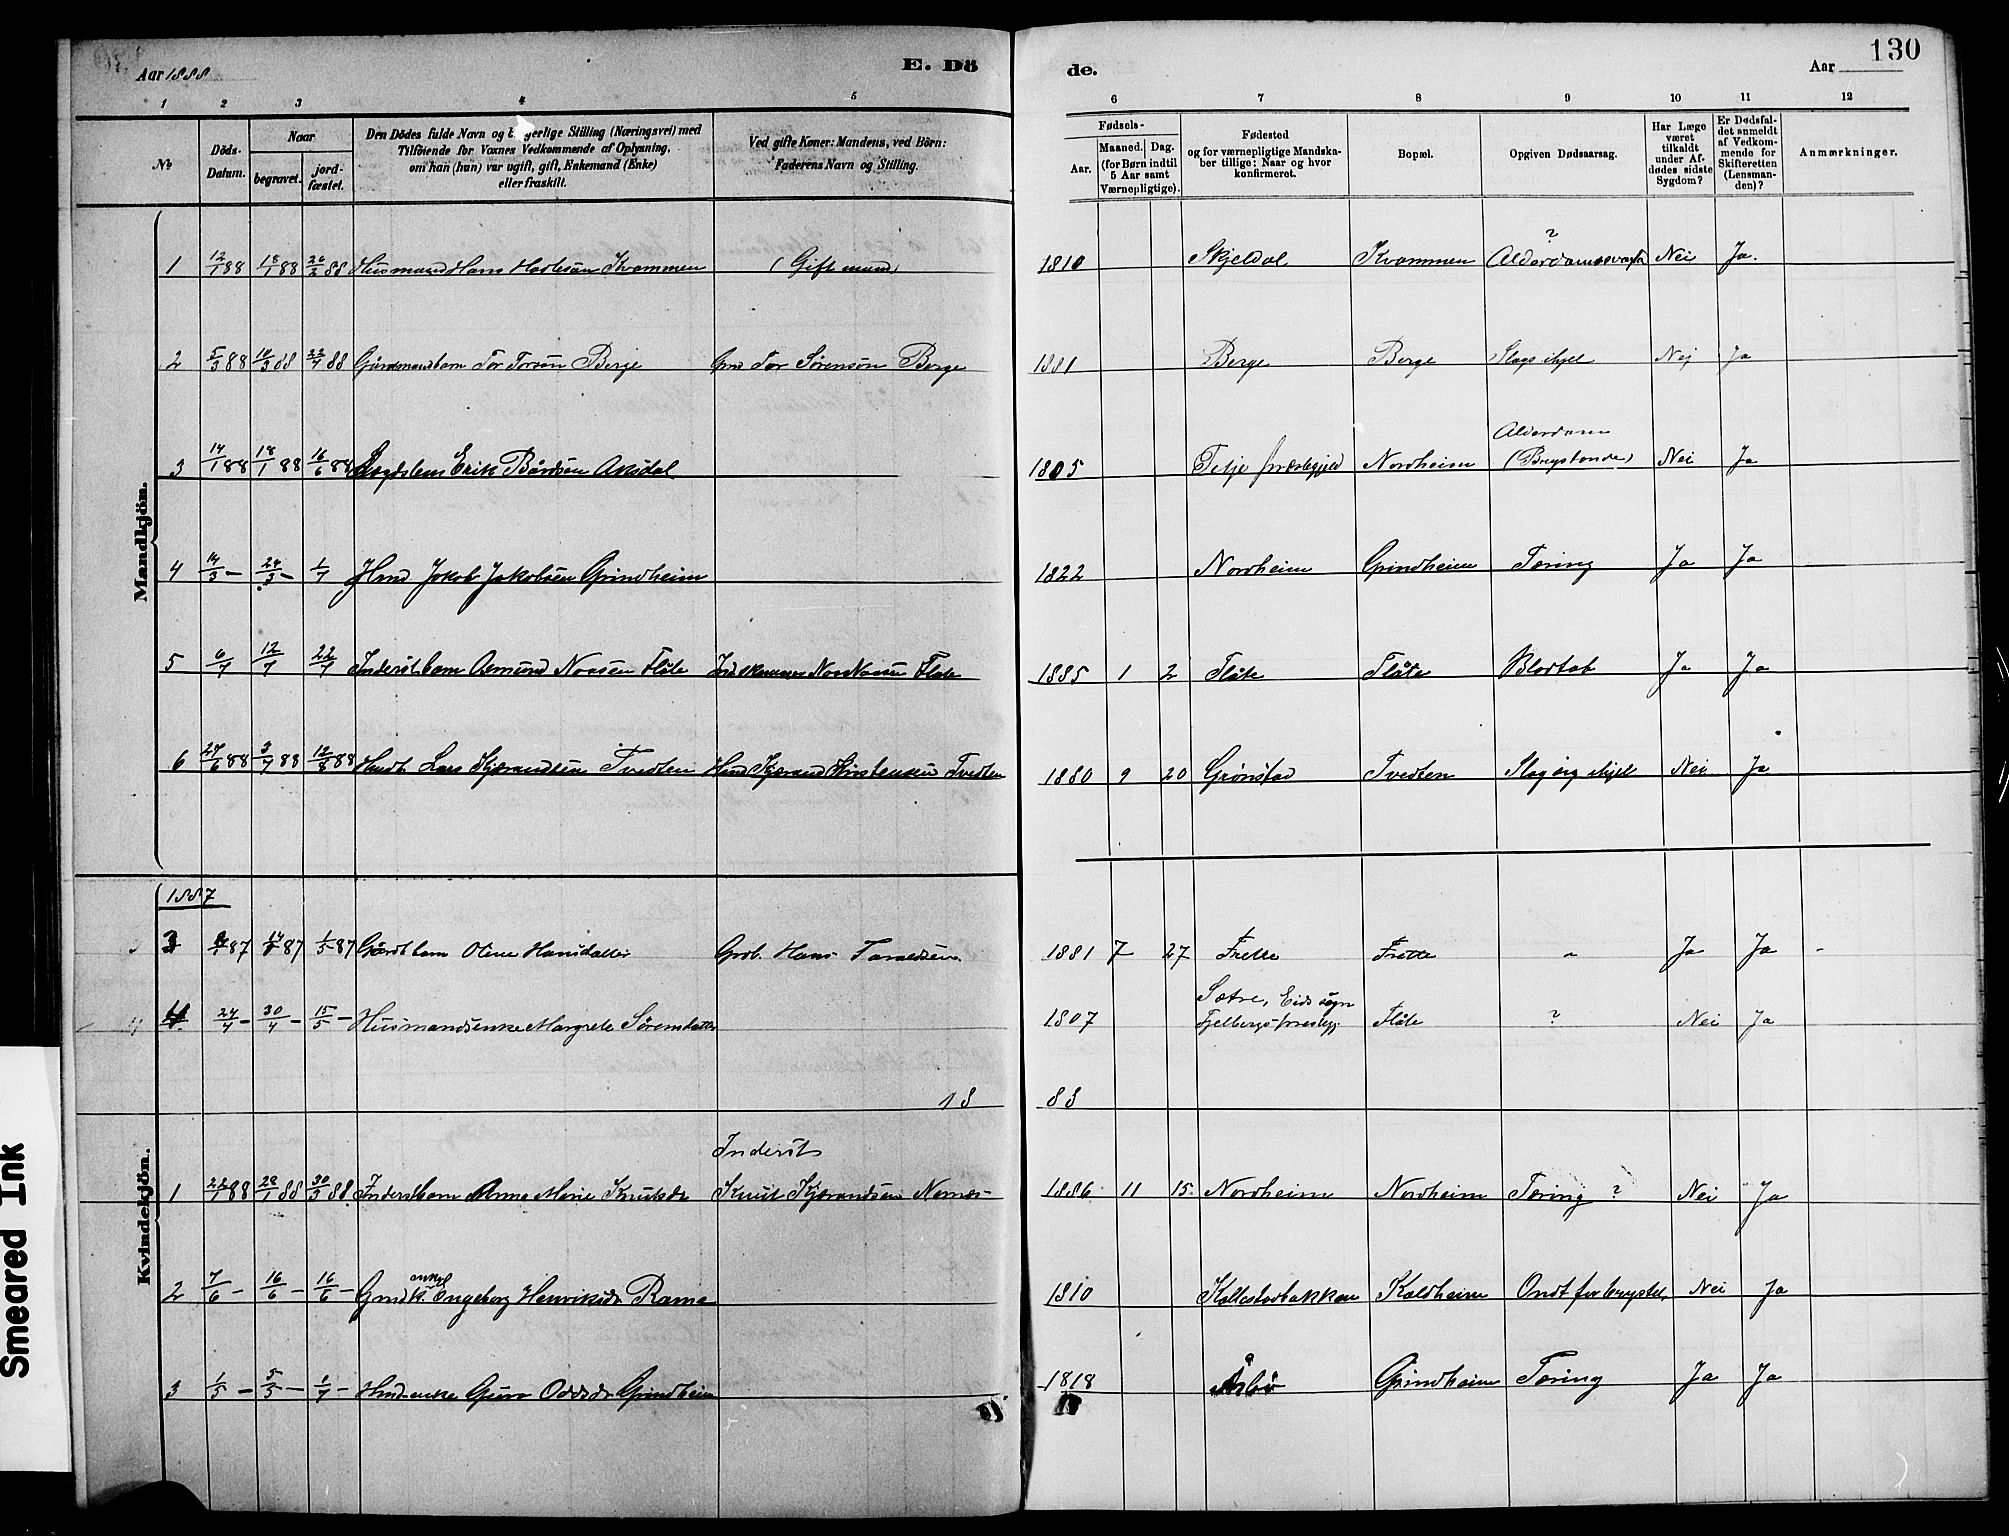 Aar 1888
E. Dö
de.
Aar
130
1 2 3 4 5 6 7 8 9 10 11 12
№
Döds-Datum.
Naar
begravet.
jord-fæstet.
Den Dödes fulde Navn og borgerlige Stilling (Næringsvei) med
Tilföiende for Voxnes Vedkommende af Oplysning,
om han (hun) var ugift, gift, Enkemand (Enke)
eller fraskilt.
Ved gifte Koner: Mandens, ved Börn:
Faderens Navn og Stilling.
Fødsels-
Aar.
Maaned. Dag.
(for Børn indtil
5 Aar samt
Værnepligtige).
Fødested
og for værnepligtige Mandska-
ber tillige: Naar og hvor
konfirmeret.
Bopæl.
Opgiven Dødsaarsag.
Har Læge
været
tilkaldt
under Af-
dødes sidste
Sygdom?
Er Dødsfal-
det anmeldt
af Vedkom-
mende for
Skifteretten
(Lensman-
den)?
Anmærkninger.
Mandkjön.
1 12/1 88 18/1 88 26/2 88 Husmand Hans Kvammen (Gift mand) 1810 Skjeldal Kvammen ? Alderdomssvaghed Nei Ja.
2 5/3 88 10/3 88 22/4 88 Gårdmandsbarn Tor Torsøn Berge Gmd Tor Sørensøn Berge 1881 Berge Berge Slags ihjel Nej Ja
3 14/1 88 18/1 88 16/6 88 Lægdslem Erik Bårdsen Aksdal 1805 præstegjeld Nordheim Alderdom (Brystonde) Nei Ja
4 14/3 - 24/3 - 1/7 Hmd Jakob Jakobsen Grindheim 1822 Nordheim Grindheim Tæring Ja Ja
5 6/7 12/7 22/7 Inderstbarn Asmund Flåte Flåte 1885 1 2 Flåte Flåte Blodtab Ja Ja
6 27/6 88 3/7 88 12/8 88 Hmdb. Lars Kjærandsen Tvedten Hmd Kjærand Kristensen Tvedten 1880 9 20 Grønstad Tvedten Slog sig ihjel Nei Ja
1887
Kvindekjön.
3 87 87 1/5 87 Gårdbarn Oline Hansdatter Grdb. Hans Taraldsen 1881 7 27 Frette Frette " Ja Ja -
4 24/4 - 30/4 - 15/5 - Husmandsenke Margrete Sörensdatter 1807 Sætre, Eids sogn Fjelbergs præstegj. Flåte ? Nei Ja
18
88
1 22/1 88 28/1 88 30/3 88 Inderstbarn Anna Marie Knutsdr Inderst Knut Kjærandsen 1886 11 15 Nordheim Nordheim Tæring ? Nei Ja
2 7/6 - 16/6 - 16/6 - Gmdenke Engeborg Henriksdr Ramo 1810 Kallestadbakken Kaldheim Ondt for brystet. Nei Ja
3 1/5 - 5/5 - 1/7 - Hmdsenke Guro Oddsdr Grindheim 1818 Årbø Grindheim Tæring Ja Ja
Smeared Ink